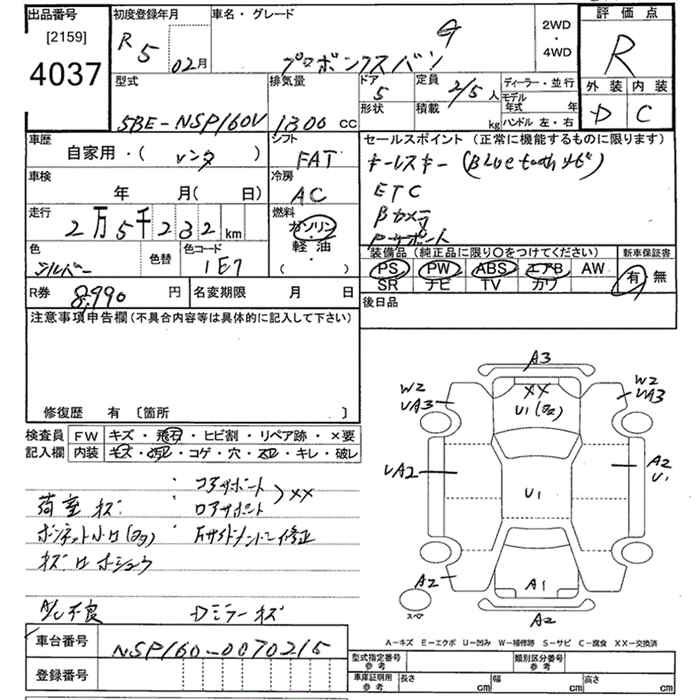 出品番号
[2159]
4037
初度登録年月
R5 02月
車名・グレード
プロボックスバン G
2WD
・
4WD
評価点
R
外装 内装
D C
型式
5BE-NSP160V
排気量
1300 cc
ドア
5
形状
定員
2/5 人
積載
kg
ディーラー・並行
モデル年式 年
ハンドル 左・右
車歴
自家用・( レンタ )
シフト
FAT
車検
年 月( 日)
冷房
AC
走行
2万5千232 km
燃料
ガソリン
軽油
( )
色
シルバー
色替
色コード
1E7
セールスポイント (正常に機能するものに限ります)
キーレスキー (Bluetoothナビ)
ETC
Bカメラ
Pサポート
装備品 (純正品に限り○をつけてください)
PS PW ABS エアB AW
SR ナビ TV カワ
新車保証書
有 無
R券 8,990 円
名変期限 月 日
後日品
注意事項申告欄 (不具合内容等は具体的に記入して下さい)
修復歴 有 〔箇所 〕
検査員記入欄
FW キズ・飛石・ヒビ割・リペア跡・×要
内装 キズ・汚レ・コゲ・穴・スレ・キレ・破レ
:コアサポート
荷室キズ :ロアサポート >XX
ボンネット小ロ(色) :Fサイドメンバー修正
キズロホショウ
A/C不良 Dミラーキズ
車台番号 NSP160-0070215
登録番号
A3
W2
UA3
XX
U1(色)
W2
UA3
UA2
U1
A2
U1
A2
A1
A2
スペア
A-キズ E-エクボ U-凹み W-補修跡 S-サビ C-腐食 XX-交換済
型式指定番号
参考
類別区分番号
参考
車庫証明用
参考
長さ cm
幅 cm
高さ cm